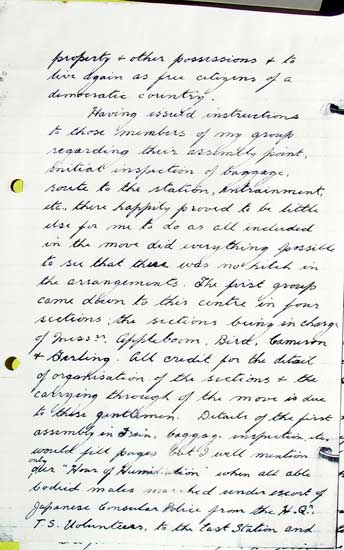 property & other possessions & to
live again as free citizens of a
democratic country.
Having issued instructions
to those members of my group
regarding their assembly point,
initial inspection of baggage,
route to the station, entrainment,
etc, there happily proved to be little
else for me to do as all included
in the move did everything possible
to see that there was no hitch in
the arrangements. The first group
came down to this centre in four
sections, the sections being in charge
of Messrs. Appleboom, Bird, Cameron
& Darling. All credit for the detail
of organisation of the sections & the
carrying through of the move is due
to these gentlemen. Details of the first
assembly in T'sin, baggage inspection, etc,
would fill pages but I will mention
only
our "Hour of Humiliation" when all able
bodied males marched under escort of
Japanese Consular Police from the H.Q.,
T.S. Volunteers, to the East Station and